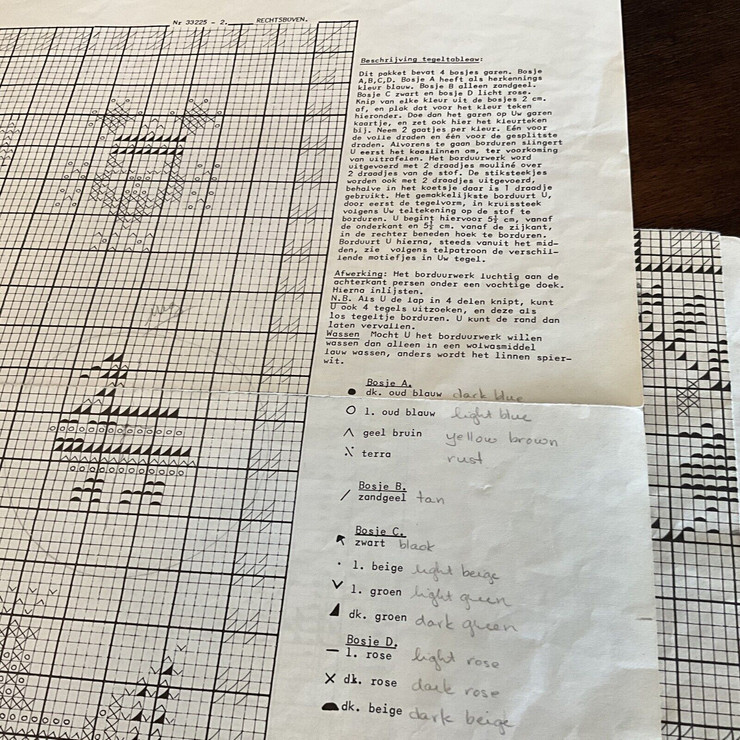 Nr 33225 - 2. RECHTSBOVEN.
Beschrijving tegeltableaw:
Dit pakket bevat 4 bosjes garen. Bosje
A,B,C,D. Bosje A heeft als herkennings
kleur blauw. Bosje B alleen zandgeel.
Bosje C zwart en bosje D licht rose.
Knip van elke kleur uit de bosjes 2 cm.
af, en plak dat voor het kleur teken
hieronder. Doe dan het garen op Uw garen
kaartje, en zet ook hier het kleurteken
bij. Neem 2 gaatjes per kleur. Eén voor
de volle draden en één voor de gesplitste
draden. Alvorens te gaan borduren slingert
U eerst het kaaslinnen om, ter voorkoming
van uitrafelen. Het borduurwerk word
uitgevoerd met 2 draadjes mouliné over
2 draadjes van de stof. De stiksteekjes
worden ook met 2 draadjes uitgevoerd,
behalve in het koetsje daar is 1 draadje
gebruikt. Het gemakkelijkste borduurt U,
door eerst de tegelvorm, in kruissteek
volgens Uw teltekening op de stof te
borduren. U begint hiervoor 5½ cm, vanaf
de onderkant en 5½ cm. vanaf de zijkant,
in de rechter beneden hoek te borduren.
Borduurt U hierna, steeds vanuit het mid-
den, zie volgens telpatroon de verschil-
lende motiefjes in Uw tegel.
Afwerking: Het borduurwerk luchtig aan de
achterkant persen onder een vochtige doek.
Hierna inlijsten.
N.B. Als U de lap in 4 delen knipt, kunt
U ook 4 tegels uitzoeken, en deze als
los tegeltje borduren. U kunt de rand dan
laten vervallen.
Wassen Mocht U het borduurwerk willen
wassen dan alleen in een wolwasmiddel
lauw wassen, anders wordt het linnen spier-
wit.
Bosje A.
dk. oud blauw dark blue
l. oud blauw light blue
geel bruin yellow brown
terra rust
Bosje B.
zandgeel tan
Bosje C.
zwart black
l. beige light beige
l. groen light green
dk. groen dark green
Bosje D.
l. rose light rose
dk. rose dark rose
dk. beige dark beige